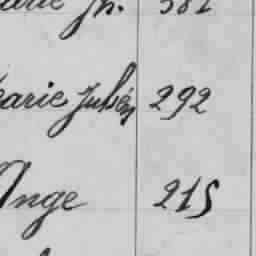 arie Jh. 382
earie Julien 292
Ange 215